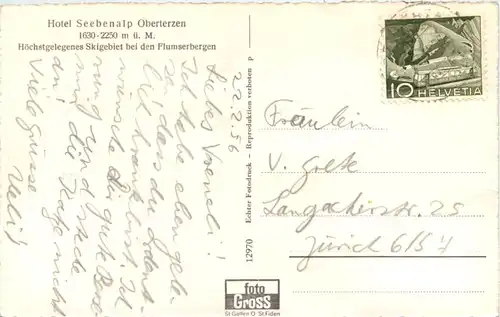 Hotel Seebenalp Oberterzen
1630-2250 m ü. M.
Höchstgelegenes Skigebiet bei den Flumserbergen
22.2.56
Liebes Vreneli!
Ich habe eben gele-
sen, dass du ordent-
lich krank bist. Ich
wünsche dir gute Besse-
rung und
mir die Tage nicht
du!
Viele Grüsse
Ueli!
12970 Echter Fotodruck - Reproduktion verboten P
foto
Gross
St. Gallen O St. Fiden
10 HELVETIA
Fräulein
V.
25
Zürich 6/